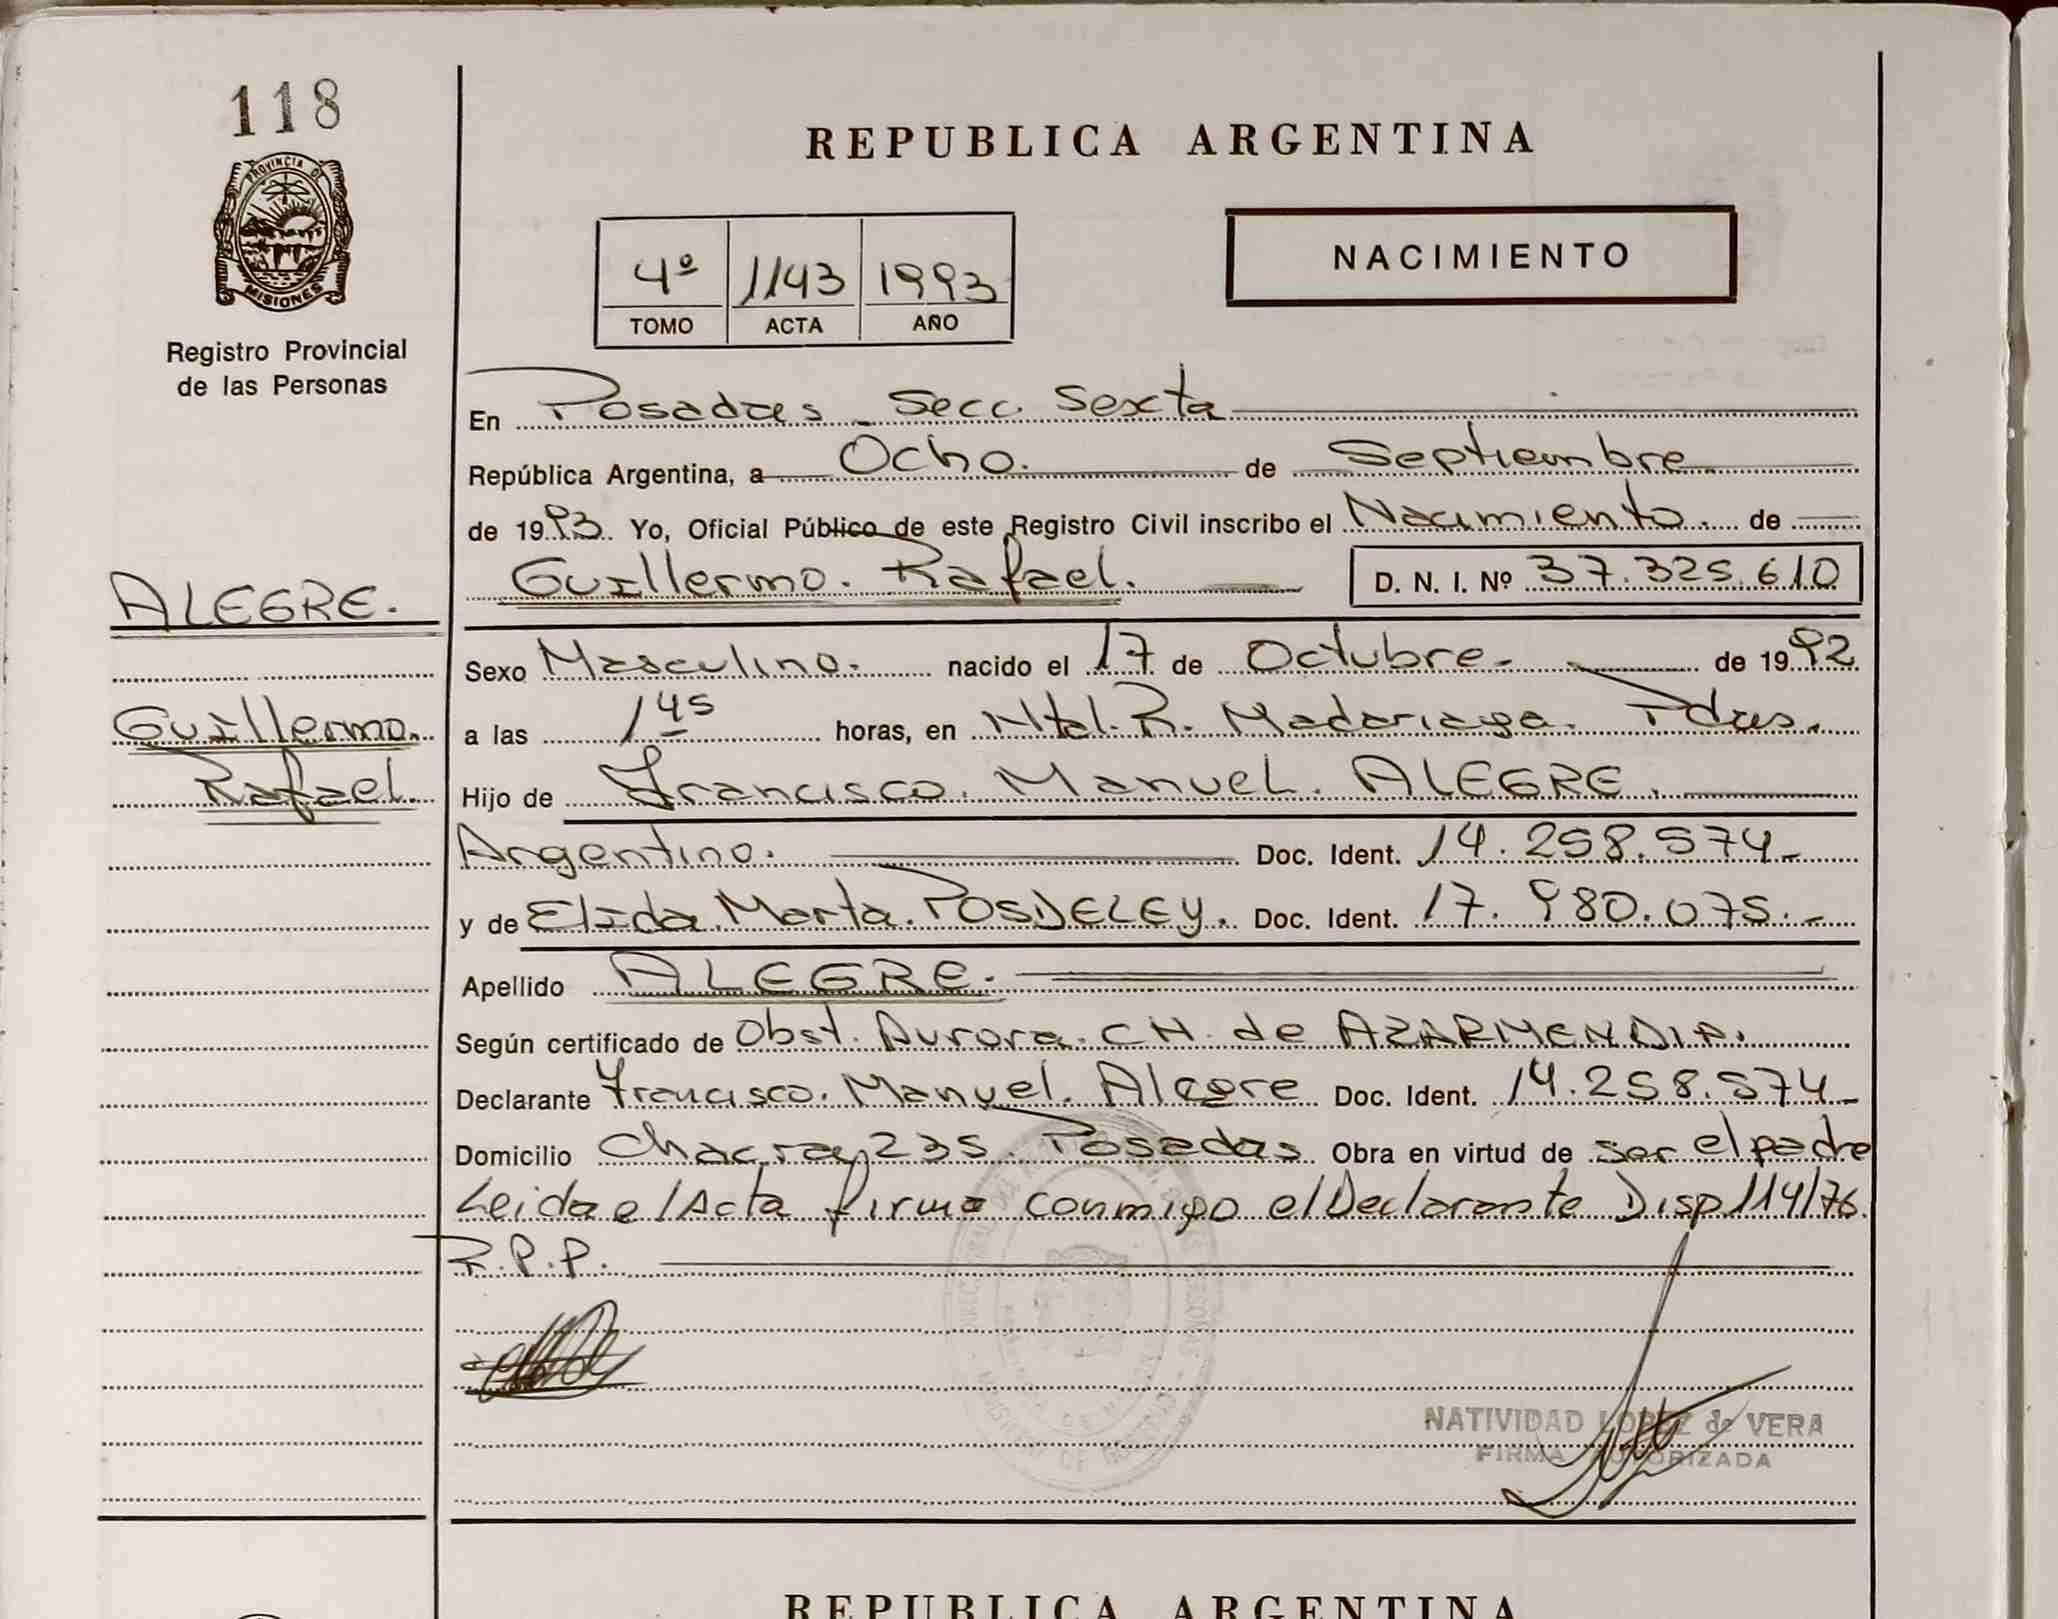 118
PROVINCIA DE
MISIONES
Registro Provincial
de las Personas
REPUBLICA ARGENTINA
4º 1143 1993
TOMO ACTA AÑO
NACIMIENTO
En Posadas Secc. Sexta
República Argentina, a Ocho. de Septiembre
de 1993. Yo, Oficial Público de este Registro Civil inscribo el Nacimiento. de
Guillermo. Rafael. D. N. I. Nº 37.325.610
ALEGRE.
Guillermo.
Rafael.
Sexo Masculino. nacido el 17 de Octubre. de 1992
a las 1 45 horas, en Htal. R. Madariaga. Pdas.
Hijo de Francisco. Manuel. ALEGRE.
Argentino. Doc. Ident. 14.258.574
y de Elida. Marta. POSDELEY. Doc. Ident. 17.980.075.
Apellido ALEGRE.
Según certificado de Obst. Aurora. CH. de AZARMENDIA.
Declarante Francisco. Manuel. Alegre Doc. Ident. 14.258.574
Domicilio Chacra 235. Posadas Obra en virtud de ser el padre
Leida el Acta firma conmigo el Declarante Disp 114/76.
R.P.P.
NATIVIDAD LOPEZ de VERA
FIRMA AUTORIZADA
REPUBLICA ARGENTINA